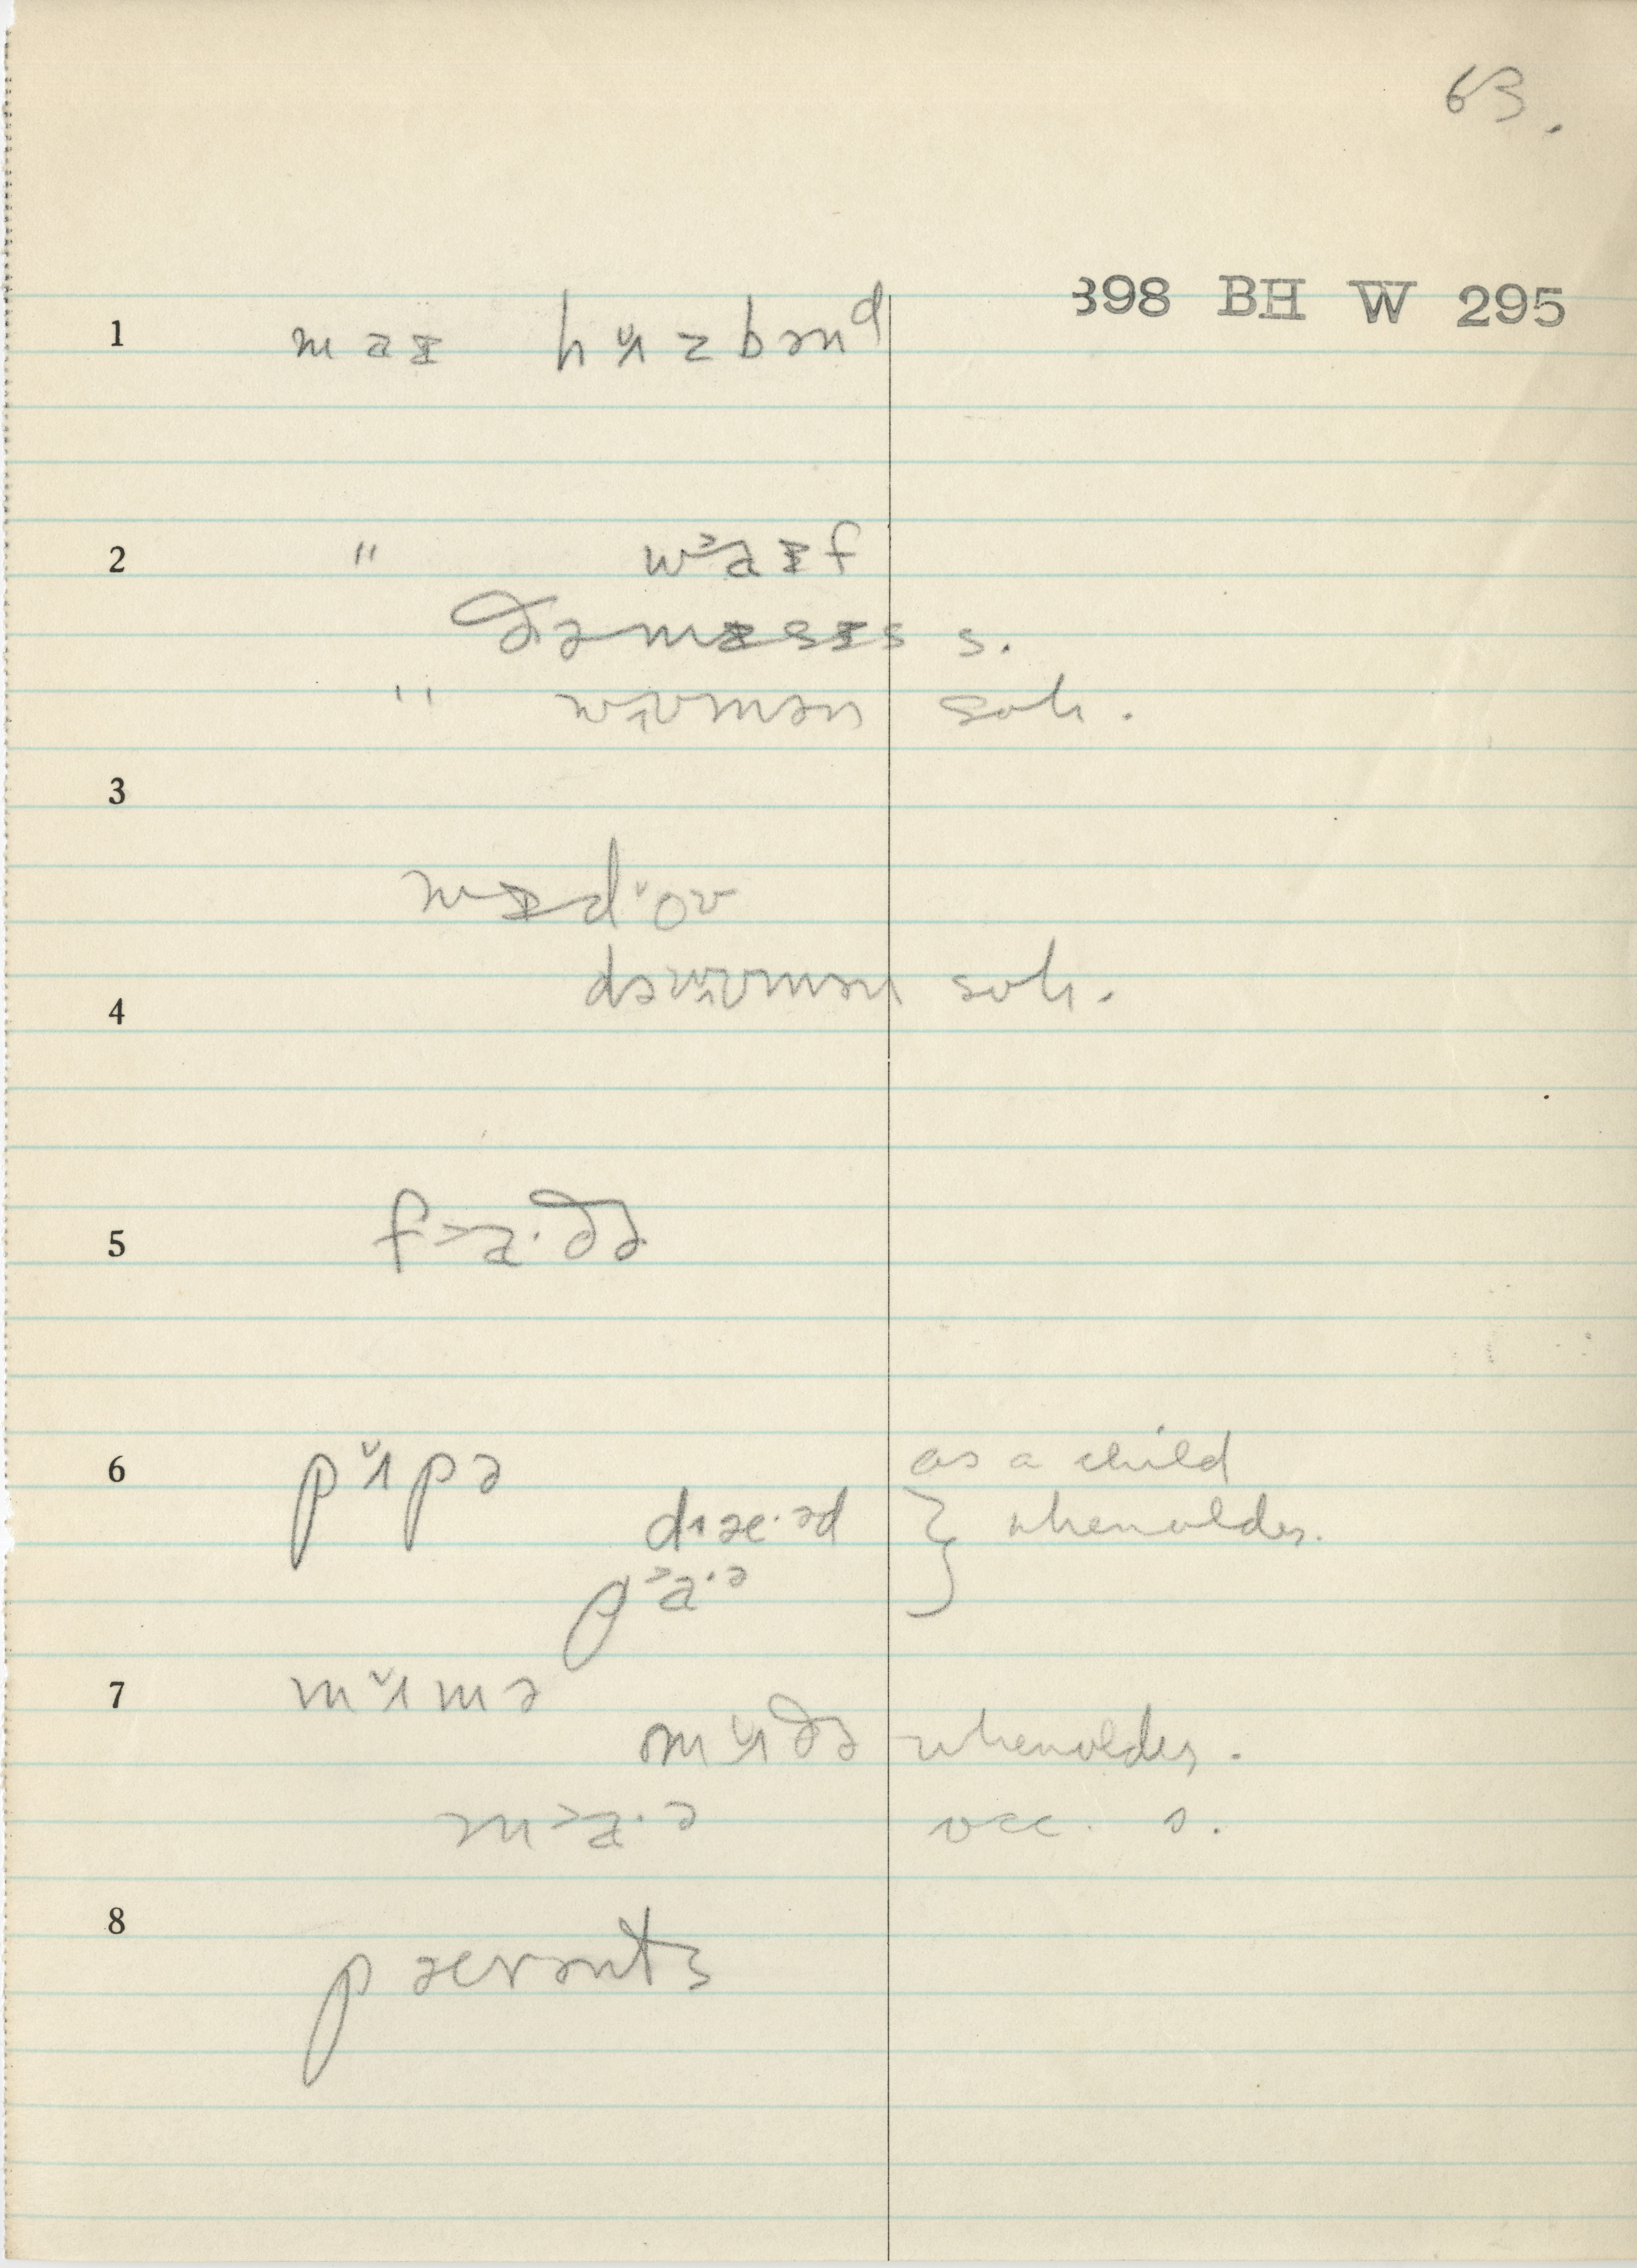 63.
398 BH W 295
1 maɪ hʌ̆zbənᵈ
2 " wᵊaɪf
ðəmɪsɪs s.
" wʊmən soh.
3
wɪdˇoʊ
4 dəwʊmən soh.
5 f>a·ðə
6 pʌ̆pə as a child
dɪæ·əd } when older.
p>a·ə
7 mʌ̆mə
mʌ̆ðə when older.
m>a·ə occ. s.
8 pɛrənts